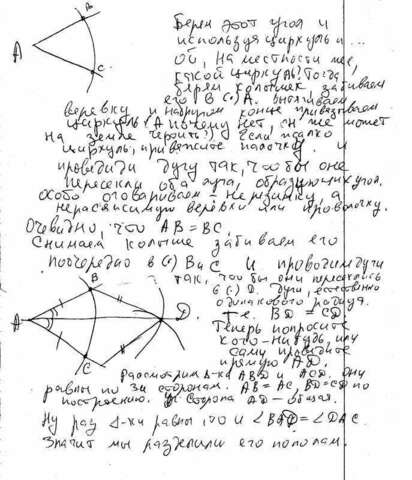 B
A
C
Берем этот угол и
используя циркуль и ...
ой, на местности же,
какой циркуль? Тогда
берем колышек, забиваем
его в (•) A. вытягиваем
веревку и на другом конце привязываем
циркуль (А почему нет, он же может
на земле чертить?) Если жалко
циркуль, привяжите палочку и
проведите дугу так, чтобы она
пересекла оба луча, образующих угол.
особо оговариваем - не резинку, а
нерастяжимую веревку или проволоку.
Очевидно, что AB = BC,
Снимаем колышек забиваем его
поочередно в (•) B и C и проводим дуги
так, что бы они пересеклись
в (•) D. Дуги, естественно
одинакового радиуса.
Т.е. BD = CD
Теперь попросите
кого-нибудь, или
сами проведите
прямую AD.
B
A
D
C
Рассмотрим Δ-ки ABD и ACD. они
равны по 3м сторонам. AB = AC, BD = CD по
построению. Сторона AD - общая.
Ну раз Δ-ки равны, то и ∠BAD = ∠DAC.
Значит мы разделили его пополам.